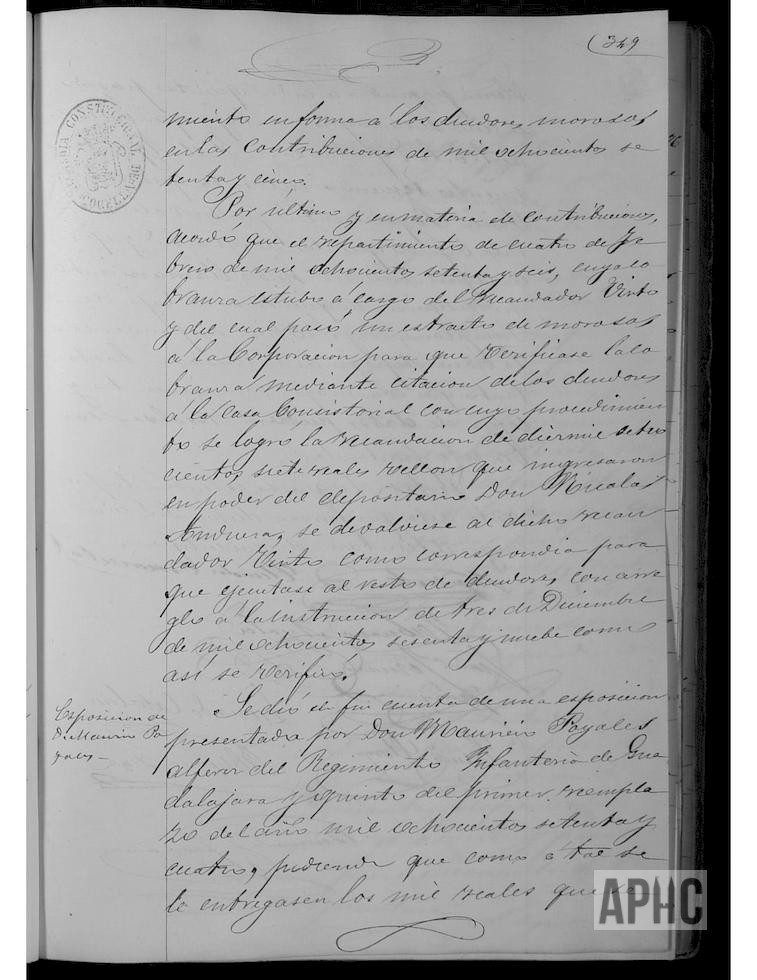 (349
miento en forma á los deudores morosos
en las Contribuciones de mil ochocientos se
tenta y cinco.
Por último y en materia de contribuciones,
acordó que el repartimiento de cuatro de Fe
brero de mil ochocientos setenta y seis, cuya co
branza estubo á cargo del Recaudador Vinto
y del cual pasó un estracto de morosos
á la Corporacion para que verificase la co
branza mediante citacion de los deudores
á la Casa Consistorial con cuyo procedimien
to se logró la recaudacion de diezmil ocho
cientos siete reales vellon que ingresaron
en poder del depositario Don Nicolas
se devolviese al dicho recau
dador Vinto como correspondia para
que ejecutase al resto de deudores con arre
glo á la instruccion de tres de Diciembre
de mil ochocientos sesenta y nuebe como
así se verificó.
Esposicion de
D. Mauricio Po
yales
Se dió en fin cuenta de una esposicion
presentada por Don Mauricio Poyales
alferez del Regimiento Infanteria de Gua
dalajara y quinto del primer reempla
zo del año mil ochocientos setenta y
cuatro, pidiendo que como á tal se
le entregasen los mil reales que se
APHC